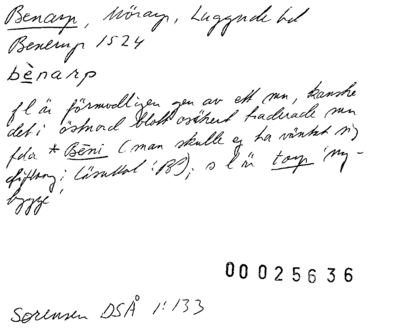 Benarp, Mörarp, Luggude hd
Benerup 1524
bènarp
fl är förmodligen gen av ett mn, kanske
det i östnord blott osäkert traderade mn
fda *Bēni (man skulle ej ha väntat sig
diftong i läsuttal: BÞ); sl är torp 'ny-
bygge'
00025636
Sørensen DSÅ 1:133